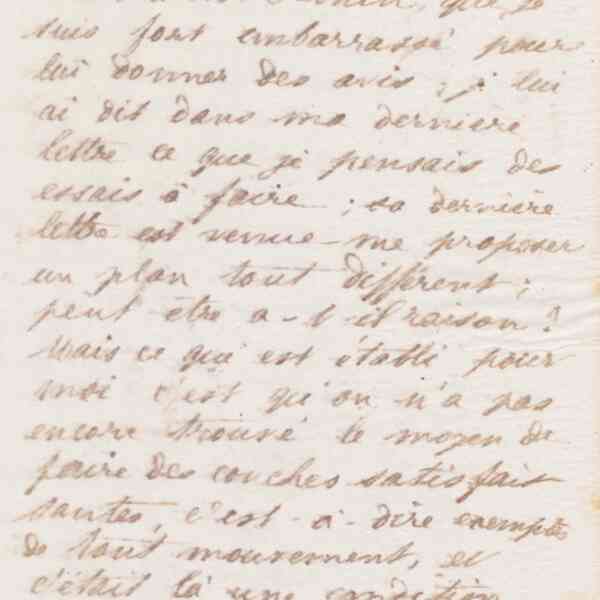 que je
suis fort embarrassé pour
lui donner des avis ; je lui
ai dit dans ma dernière
lettre ce que je pensais des
essais à faire ; sa dernière
lettre est venue me proposer
un plan tout différent ;
peut être a-t-il raison ?
Mais ce qui est établi pour
moi c'est qu'on n'a pas
encore trouvé le moyen de
faire des couches satisfai-
santes, c'est-à-dire exemptes
de tout mouvement, et
c'était là une condition